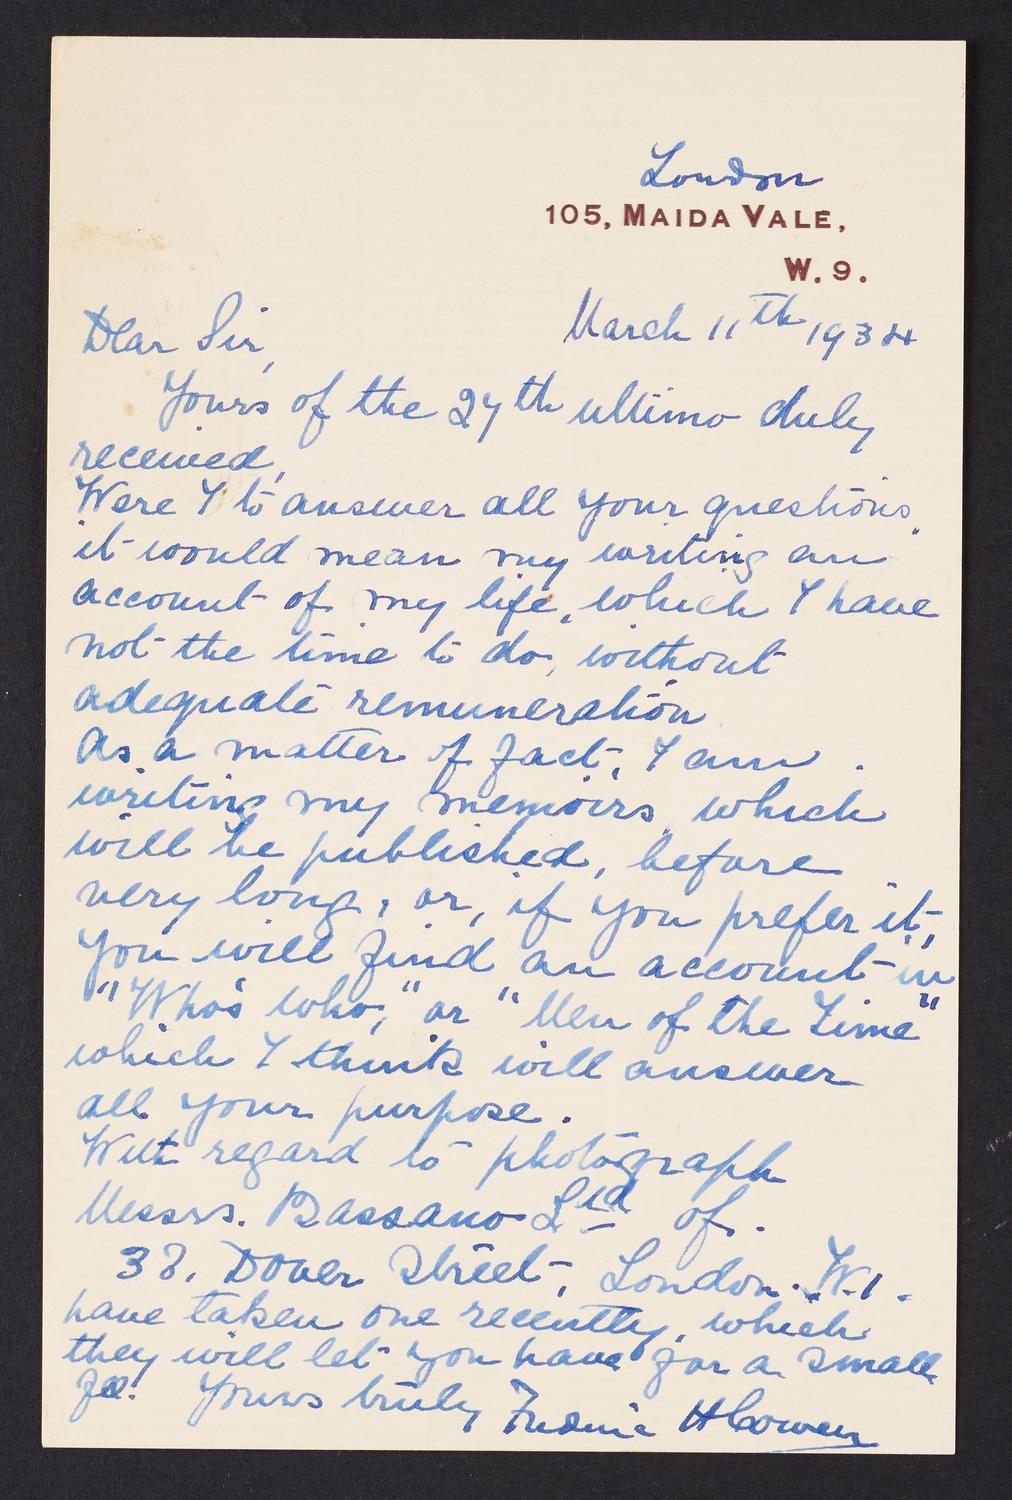 London
105, MAIDA VALE,
W. 9.
March 11th 1934
Dear Sir,
Yours of the 27th ultimo duly
received,
Were I to answer all your questions,
it would mean my writing an
account of my life, which I have
not the time to do, without
adequate remuneration.
As a matter of fact, I am
writing my memoirs, which
will be published, before
very long, or, if you prefer it,
you will find an account in
"Who's who," or "Men of the Time"
which I think will answer
all your purpose.
With regard to photograph
Messrs. Bassano Ltd of.
38, Dover Street, London. W.1.
have taken one recently, which
they will let you have for a small
fee. Yours truly Frederic H Cowen